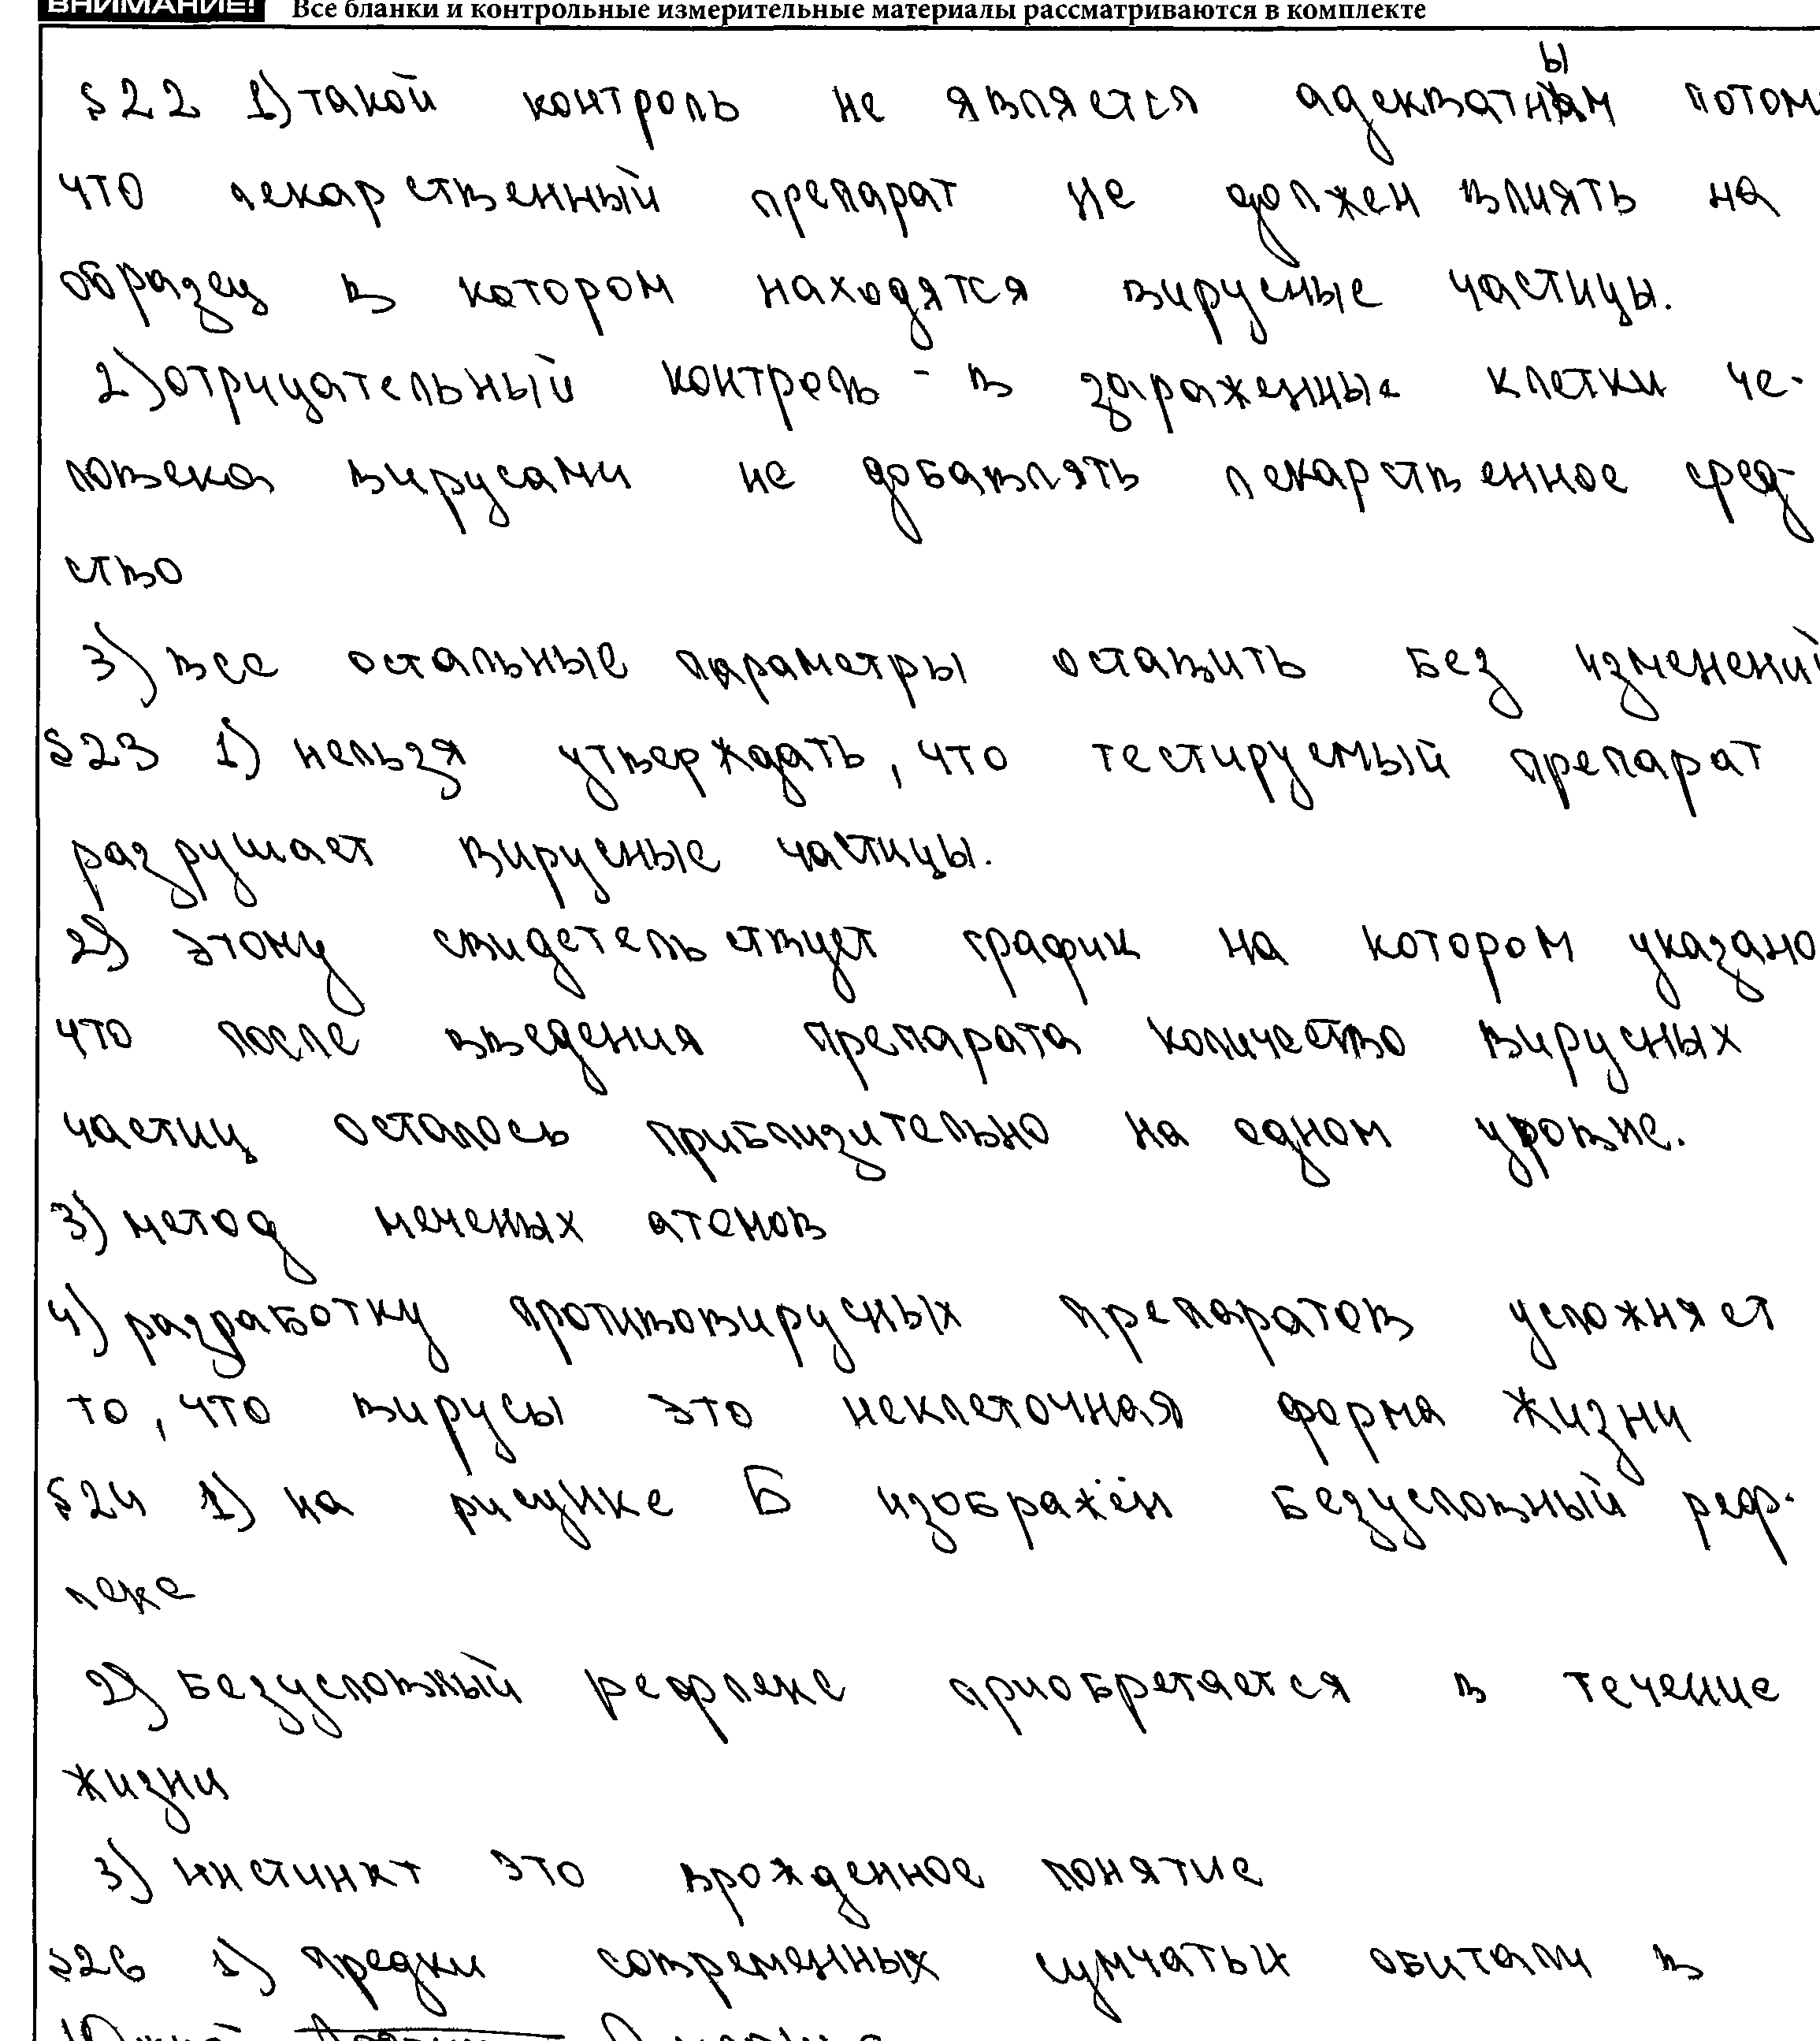 ВНИМАНИЕ! Все бланки и контрольные измерительные материалы рассматриваются в комплекте
§22 1) такой контроль не является адекватным потом
что лекарственный препарат не должен влиять на
образец в котором находятся вирусные частицы.
2) отрицательный контроль - в зараженные клетки че-
ловека вирусами не добавлять лекарственное сред-
ство
3) все остальные параметры оставить без изменений
§23 1) нельзя утверждать, что тестируемый препарат
разрушает вирусные частицы.
2) этому свидетельствует график на котором указано
что после введения препарата количество вирусных
частиц осталось приблизительно на одном уровне.
3) метод меченых атомов
4) разработку противовирусных препаратов усложняет
то, что вирусы это неклеточная форма жизни
§24 1) на рисунке Б изображён безусловный реф-
лекс
2) безусловный рефлекс приобретается в течение
жизни
3) инстинкт это врожденное понятие
§26 1) предки современных сумчатых обитали в
Южной